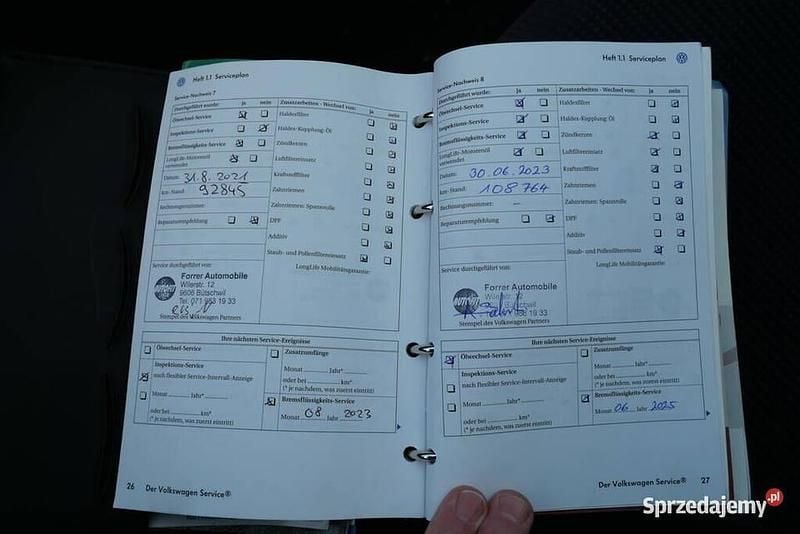 Heft 1.1 Serviceplan
Service-Nachweis 7
Durchgeführt wurde: ja nein
Ölwechsel-Service
Inspektions-Service
Bremsflüssigkeits-Service
LongLife-Motorenöl
verwendet
Datum: 31.8.2021
km-Stand: 92845
Rechnungsnummer:
Reparaturempfehlung
Zusatzarbeiten - Wechsel von: ja nein
Haldexfilter
Haldex-Kupplung Öl
Zündkerzen
Luftfiltereinsatz
Kraftstofffilter
Zahnriemen
Zahnriemen: Spannrolle
DPF
Additiv
Staub- und Pollenfiltereinsatz
LongLife Mobilitätsgarantie:
Service durchgeführt von:
Forrer Automobile
Wilerstr. 12
9606 Bütschwil
Tel. 071 983 19 33
Stempel des Volkswagen Partners
Ihre nächsten Service-Ereignisse
Ölwechsel-Service
Inspektions-Service
nach flexibler Service-Intervall-Anzeige
Monat Jahr*
oder bei km*
(* je nachdem, was zuerst eintritt)
Zusatzumfänge
Monat Jahr*
oder bei km*
(* je nachdem, was zuerst eintritt)
Bremsflüssigkeits-Service
Monat 08 Jahr 2023
26 Der Volkswagen Service®
Heft 1.1 Serviceplan
Service-Nachweis 8
Durchgeführt wurde: ja nein
Ölwechsel-Service
Inspektions-Service
Bremsflüssigkeits-Service
LongLife-Motorenöl
verwendet
Datum: 30.06.2023
km-Stand: 108764
Rechnungsnummer: –
Reparaturempfehlung
Zusatzarbeiten - Wechsel von: ja nein
Haldexfilter
Haldex-Kupplung Öl
Zündkerzen
Luftfiltereinsatz
Kraftstofffilter
Zahnriemen
Zahnriemen: Spannrolle
DPF
Additiv
Staub- und Pollenfiltereinsatz
LongLife Mobilitätsgarantie:
Service durchgeführt von:
Forrer Automobile
Wilerstr. 12
Bütschwil
19 33
Stempel des Volkswagen Partners
Ihre nächsten Service-Ereignisse
Ölwechsel-Service
Inspektions-Service
nach flexibler Service-Intervall-Anzeige
Monat Jahr*
oder bei km*
(* je nachdem, was zuerst eintritt)
Zusatzumfänge
Monat Jahr*
oder bei km*
(* je nachdem, was zuerst eintritt)
Bremsflüssigkeits-Service
Monat 06 Jahr 2025
Der Volkswagen Service® 27
Sprzedajemy.pl